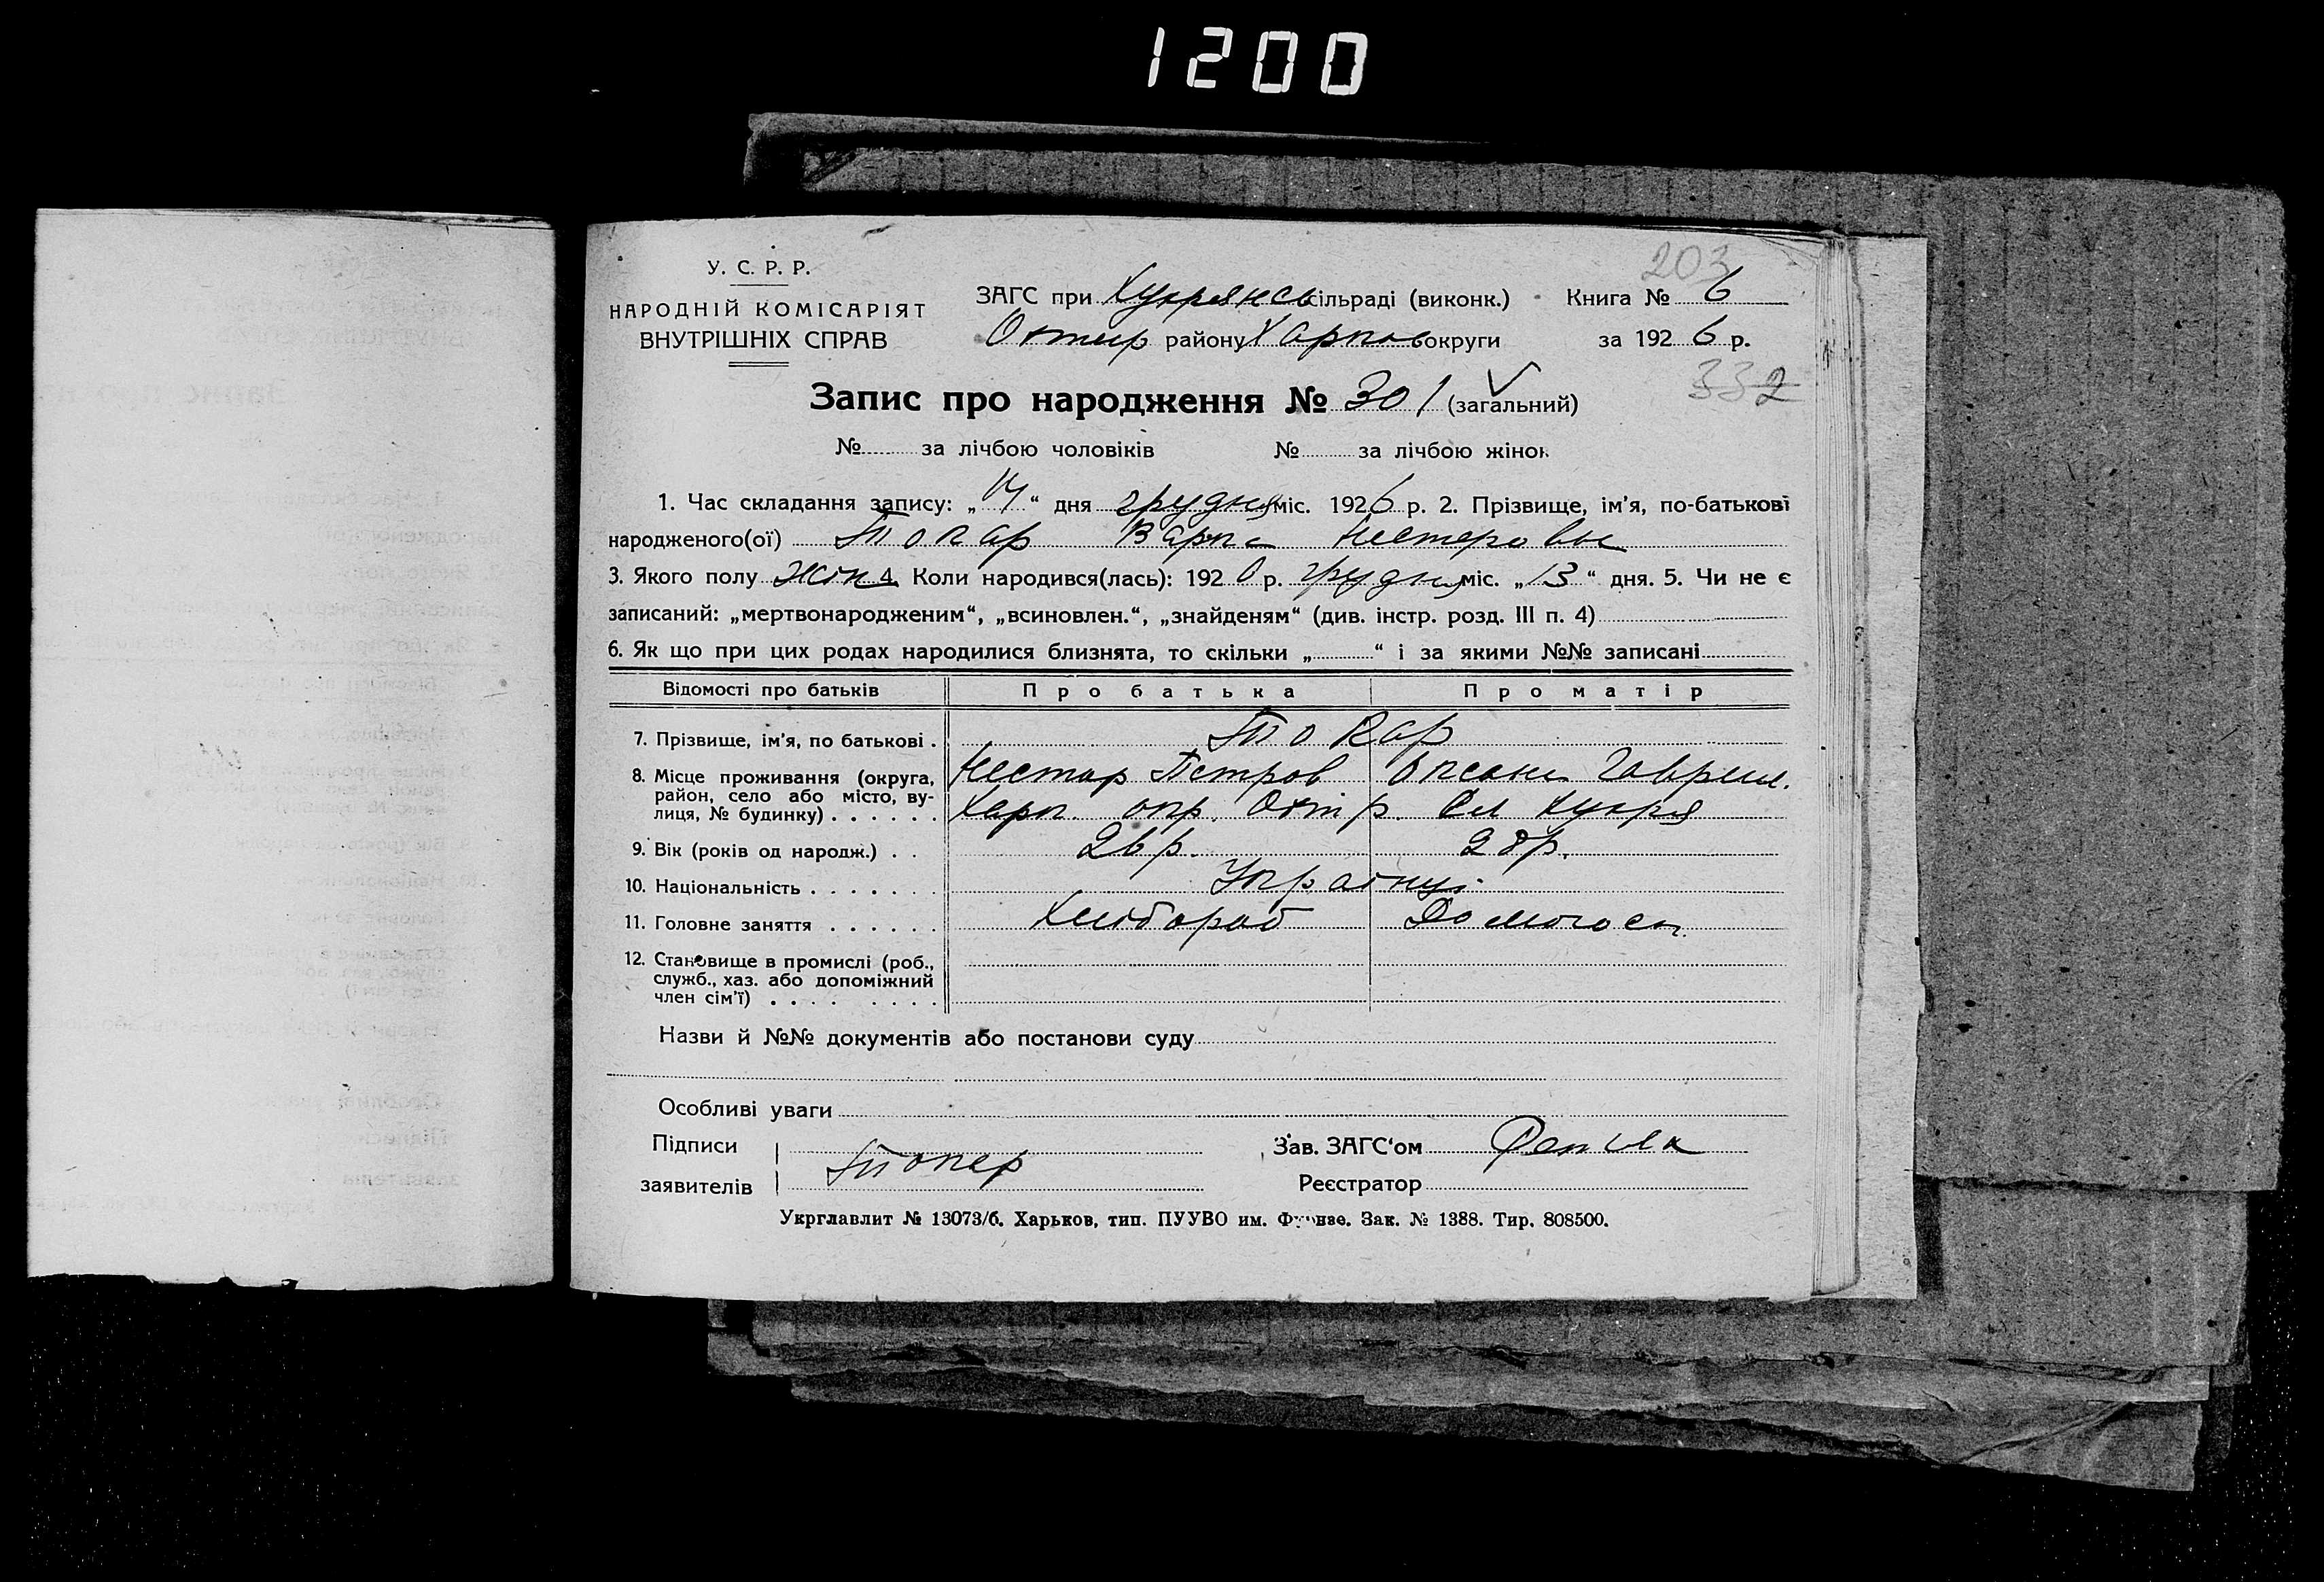 1200
203
У. С. Р. Р.
НАРОДНІЙ КОМІСАРІЯТ
ВНУТРІШНІХ СПРАВ
ЗАГС при Хухрянсь сільраді (виконк.) Книга № 6
Охтир району Харков округи за 1926 р.
332
Запис про народження № 301 (загальний)
№ за лічбою чоловіків № за лічбою жінок
1. Час складання запису: „ “ дня грудня міс. 1926 р. 2. Прізвище, ім'я, по-батькові
народженого(ої) Токар Варка Нестеровы
3. Якого полу жін 4. Коли народився(лась): 192 р. грудня міс. „13“ дня. 5. Чи не є
записаний: „мертвонародженим“, „всиновлен.“, „знайденям“ (див. інстр. розд. III п. 4)
6. Як що при цих родах народилися близнята, то скільки „ “ і за якими №№ записані
Відомості про батьків Про батька Про матір
7. Прізвище, ім'я, по батькові . Токар
8. Місце проживання (округа, Нестор Петров Оксана Гаврил.
район, село або місто, ву-
лиця, № будинку) . . . . . . Харк. окр. Охт р. Сл Хухря
9. Вік (років од народж.) . . 26 р. 28 р.
10. Національність . . . . . . . Українці
11. Головне заняття . . . . . . Хлібороб Домогосп.
12. Становище в промислі (роб.,
служб., хаз. або допоміжний
член сім'ї) . . . . . . . .
Назви й №№ документів або постанови суду
Особливі уваги
Підписи Зав. ЗАГС‘ом
Токар
заявителів Реєстратор
Укрглавлит № 13073/б. Харьков, тип. ПУУВО им. Фрунзе. Зак. № 1388. Тир. 808500.